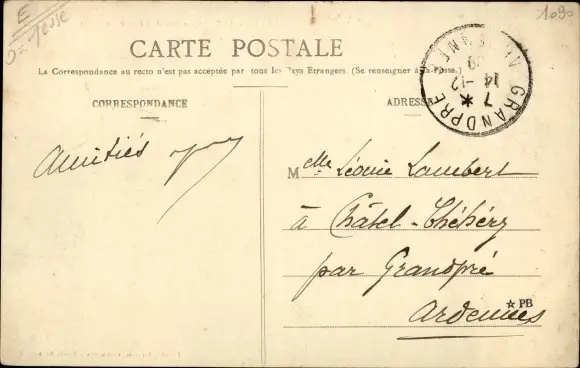 E
1090
CARTE POSTALE
La Correspondance au recto n'est pas acceptée par tous les Pays Etrangers. (Se renseigner à la Poste.)
CORRESPONDANCE
ADRESSE
GRANDPRE
7 *
14 -12
Amitiés
Melle Léonie Lambert
à Châtel-Chéhéry
par Grandpré
Ardennes
☆ PB